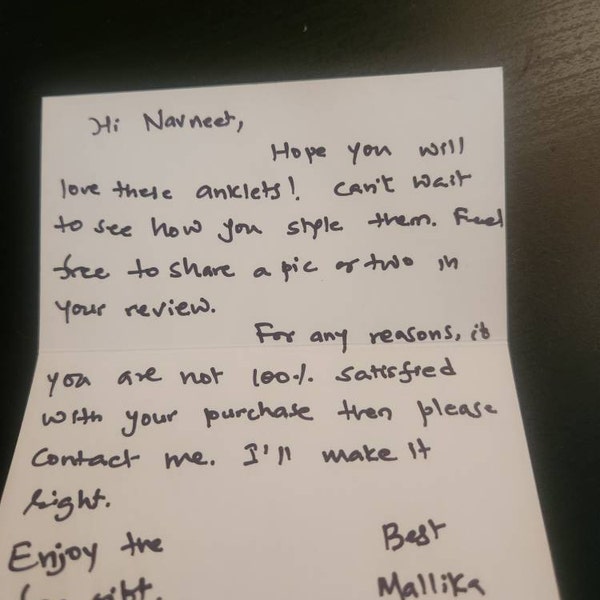 Hi Navneet,
Hope you will
love these anklets! Can't wait
to see how you style them. Feel
free to share a pic or two in
your review.
For any reasons, if
you are not 100% satisfied
with your purchase then please
Contact me. I'll make it
right.
Enjoy the Best
Mallika